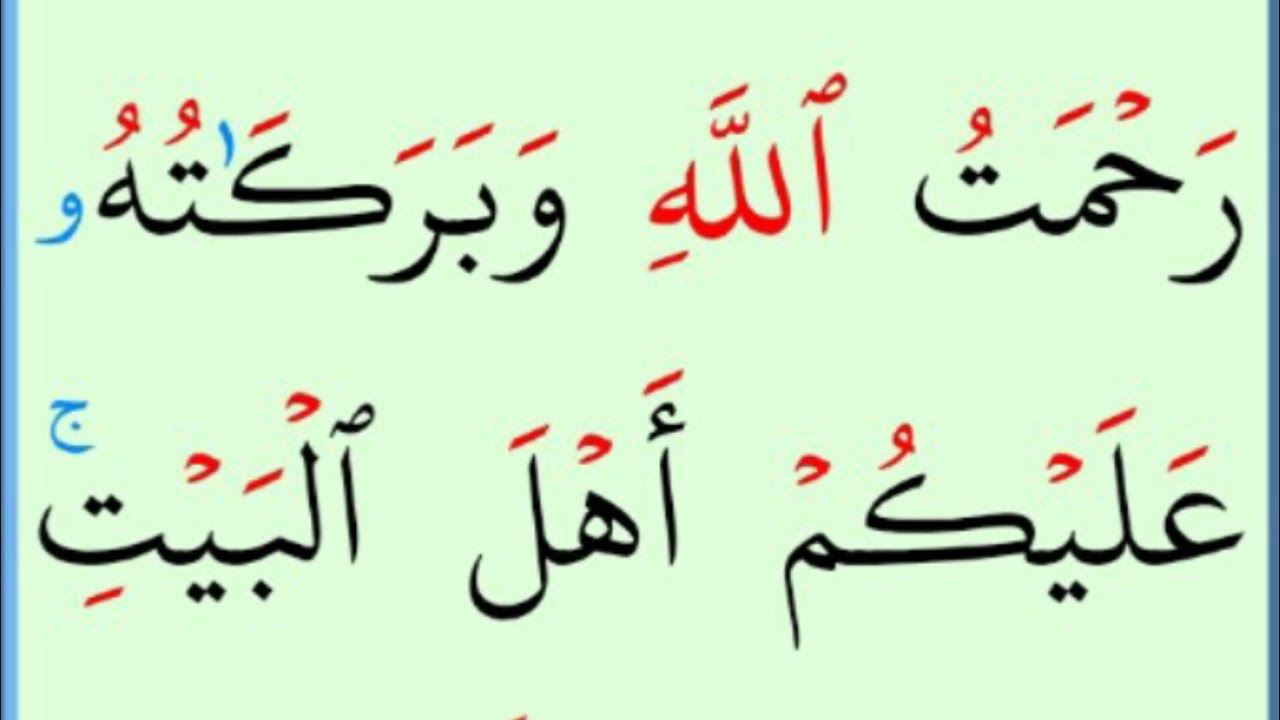 رَحْمَتُ ٱللَّهِ وَبَرَكَـٰتُهُۥ
عَلَيْكُمْ أَهْلَ ٱلْبَيْتِ ۚ